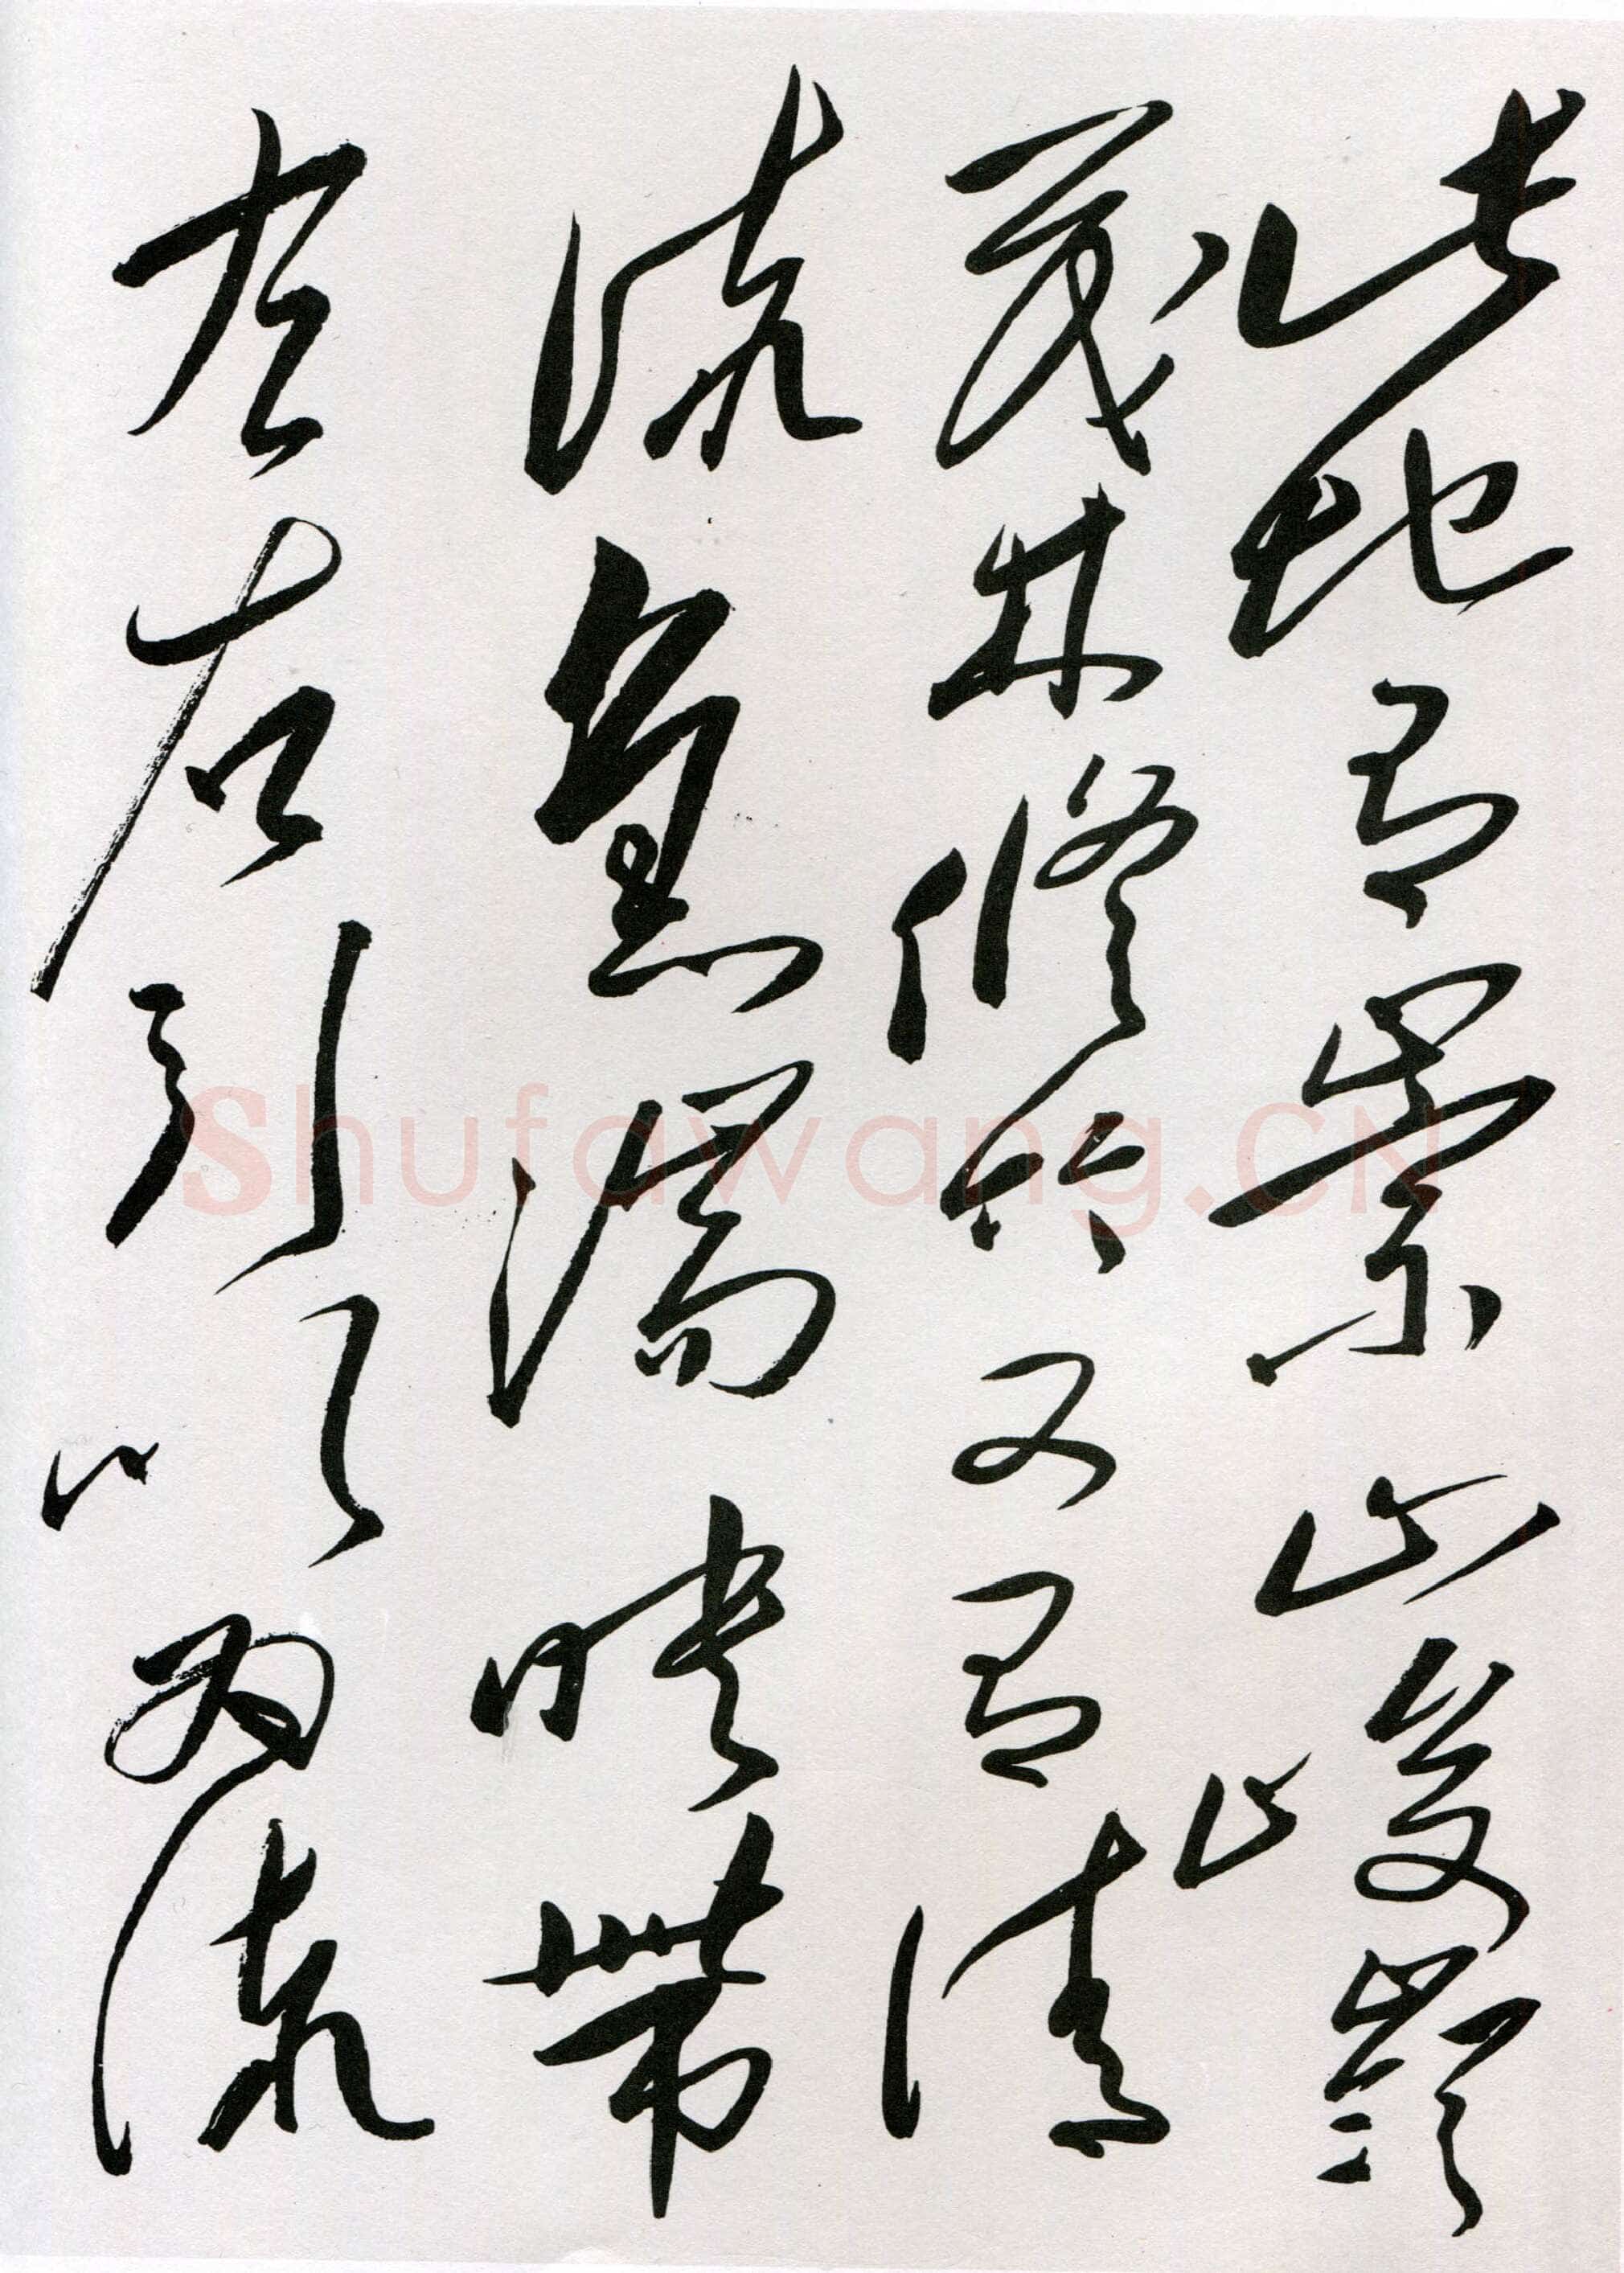 此地有崇山峻嶺
茂林修竹又有清
流激湍映帶
左右引以為流
Shufawang.CN